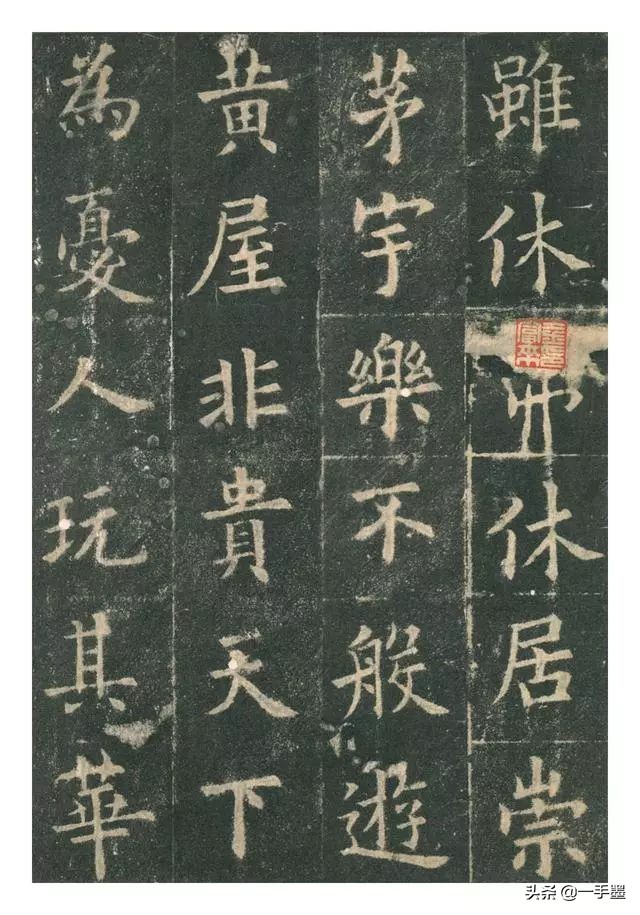 雖休休居崇
茅宇樂不般遊
黄屋非貴天下
為憂人玩其華
头条 @一手墨